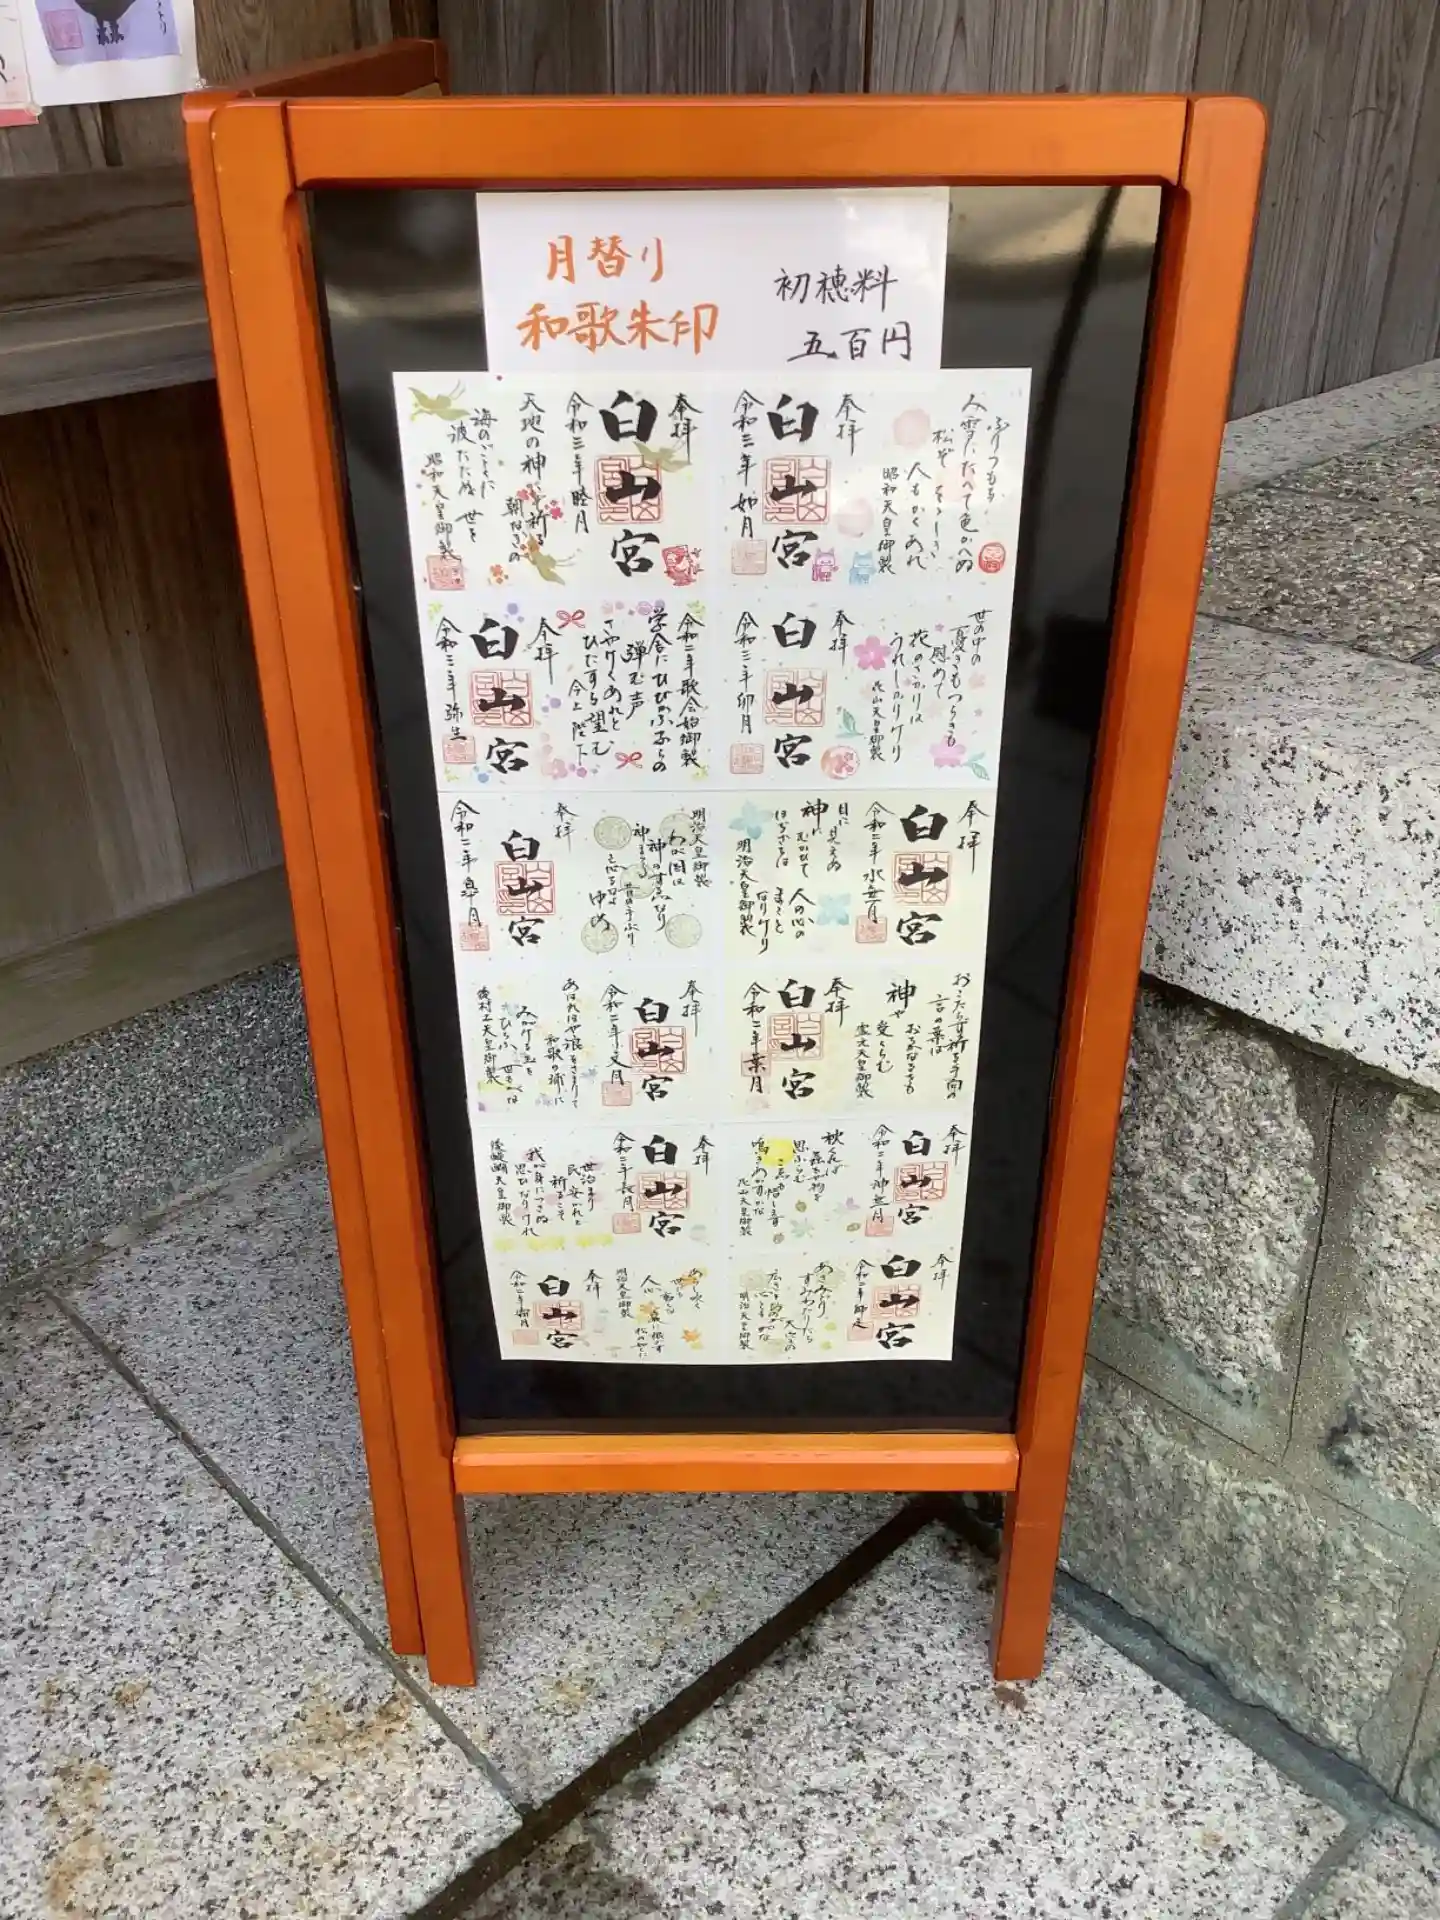 月替り
和歌朱印
初穂料
五百円
奉拝
白山宮
令和三年睦月
天地の神にぞ祈る
朝なぎの
海のごとくに
波たたぬ世を
昭和天皇御製
ふりつもる
み雪にたへて色かへぬ
松ぞををしき
人もかくあれ
昭和天皇御製
奉拝
白山宮
令和三年如月
令和二年歌会始御製
学舎にひびかふ子らの
弾む声
さやけくあれと
ひたすら望む
今上陛下
奉拝
白山宮
令和二年弥生
世の中の
憂きもつらきも
慰めて
花のさかりは
うれしかりけり
花山天皇御製
奉拝
白山宮
令和二年卯月
明治天皇御製
わが国は
神のすゑなり
神まつる
昔の手ぶり
忘るなよ
ゆめ
奉拝
白山宮
令和二年皐月
奉拝
白山宮
令和二年水無月
目に見えぬ
神にむかひて
はぢざるは
人の心の
まこと
なりけり
明治天皇御製
奉拝
白山宮
令和二年文月
あはれはや浪をさまりて
和歌の浦に
みがける玉を
ひろふ世もがな
後村上天皇御製
おこたらず祈る手向の
言の葉は
神や
おろかなるても
愛くらむ
霊元天皇御製
奉拝
白山宮
令和二年葉月
奉拝
白山宮
令和二年長月
世治まり
民安かれと
祈るこそ
我が身につきぬ
思ひなりけれ
後醍醐天皇御製
奉拝
白山宮
令和二年神無月
秋くれば
思ふらむ
鳴きあかすかな
花山天皇御製
あらし吹く
世にも
人心
巌に根ざす
松のごとくに
明治天皇御製
奉拝
白山宮
令和二年霜月
奉拝
白山宮
令和二年師走
あさみどり
すみわたりたる
大空の
広きを
心ともがな
明治天皇御製